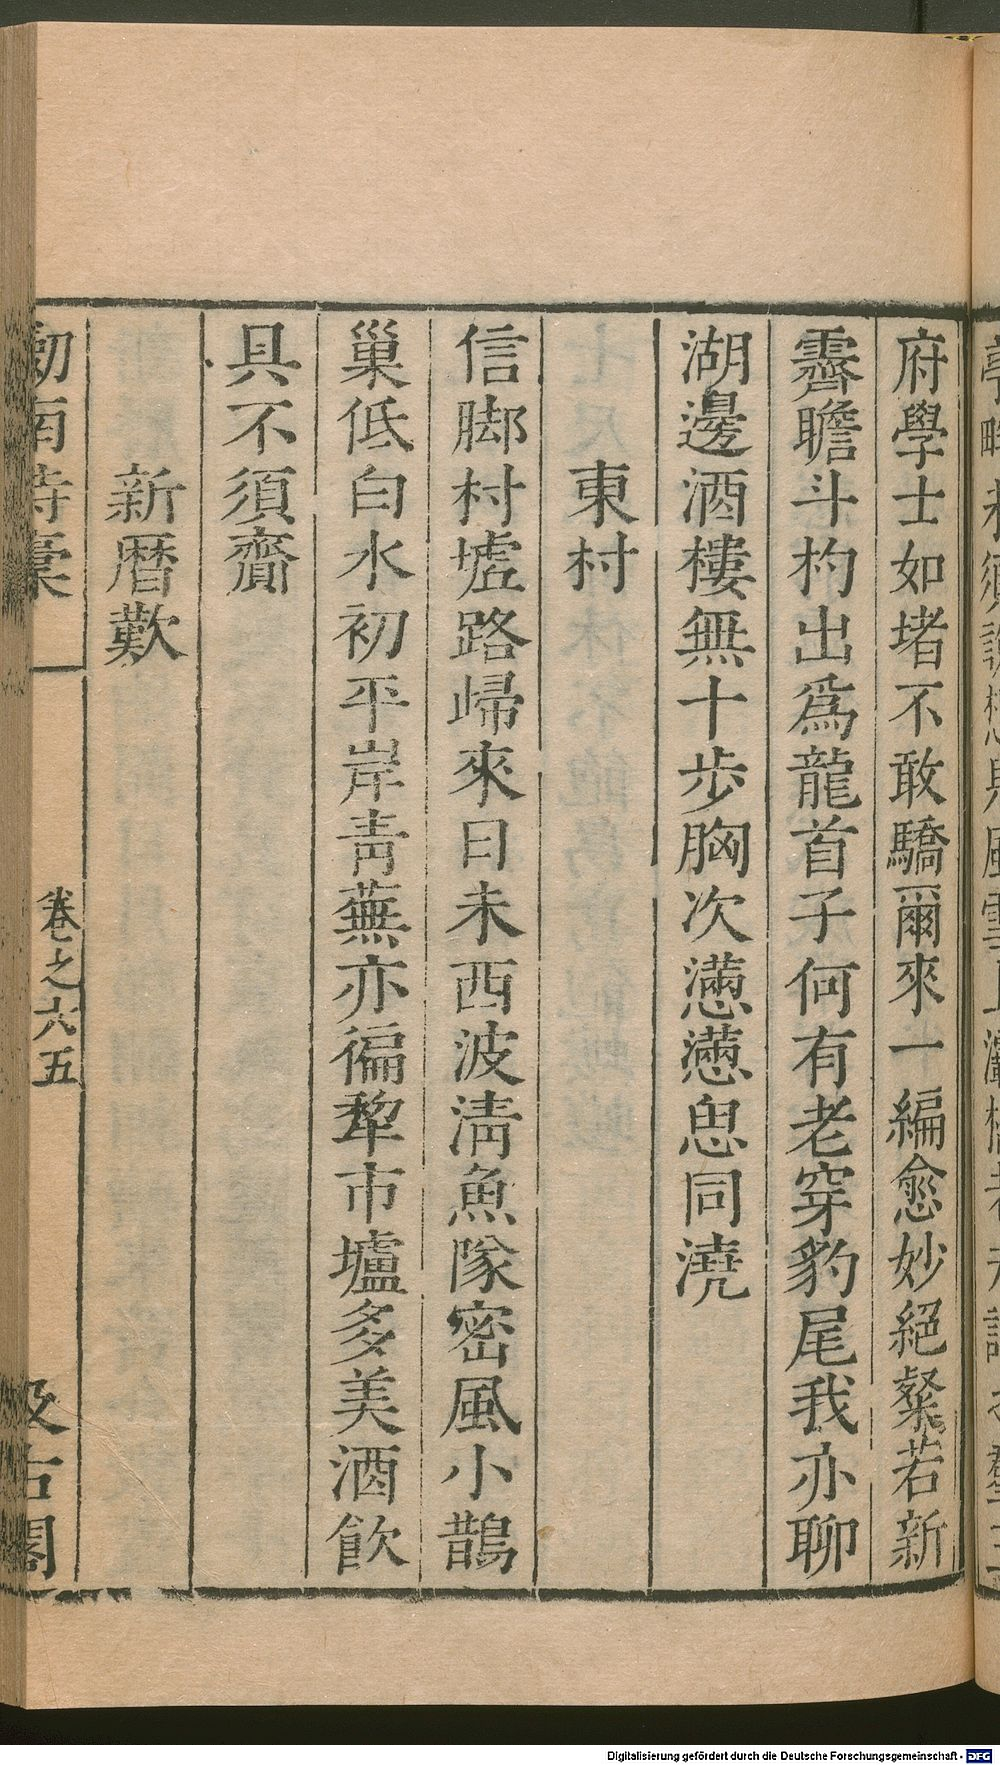 府學士如堵不敢驕爾來一編愈妙絕粲若新
霽瞻斗杓出爲龍首子何有老穿豹尾我亦聊
湖邊酒樓無十步胸次懣懣思同澆
東村
信脚村墟路歸來日未西波淸魚隊密風小鵲
巢低白水初平岸靑蕪亦徧犂市壚多美酒飮
具不須齎
新曆歎
劒南詩稾
卷之六五
汲古閣
Digitalisierung gefördert durch die Deutsche Forschungsgemeinschaft - DFG